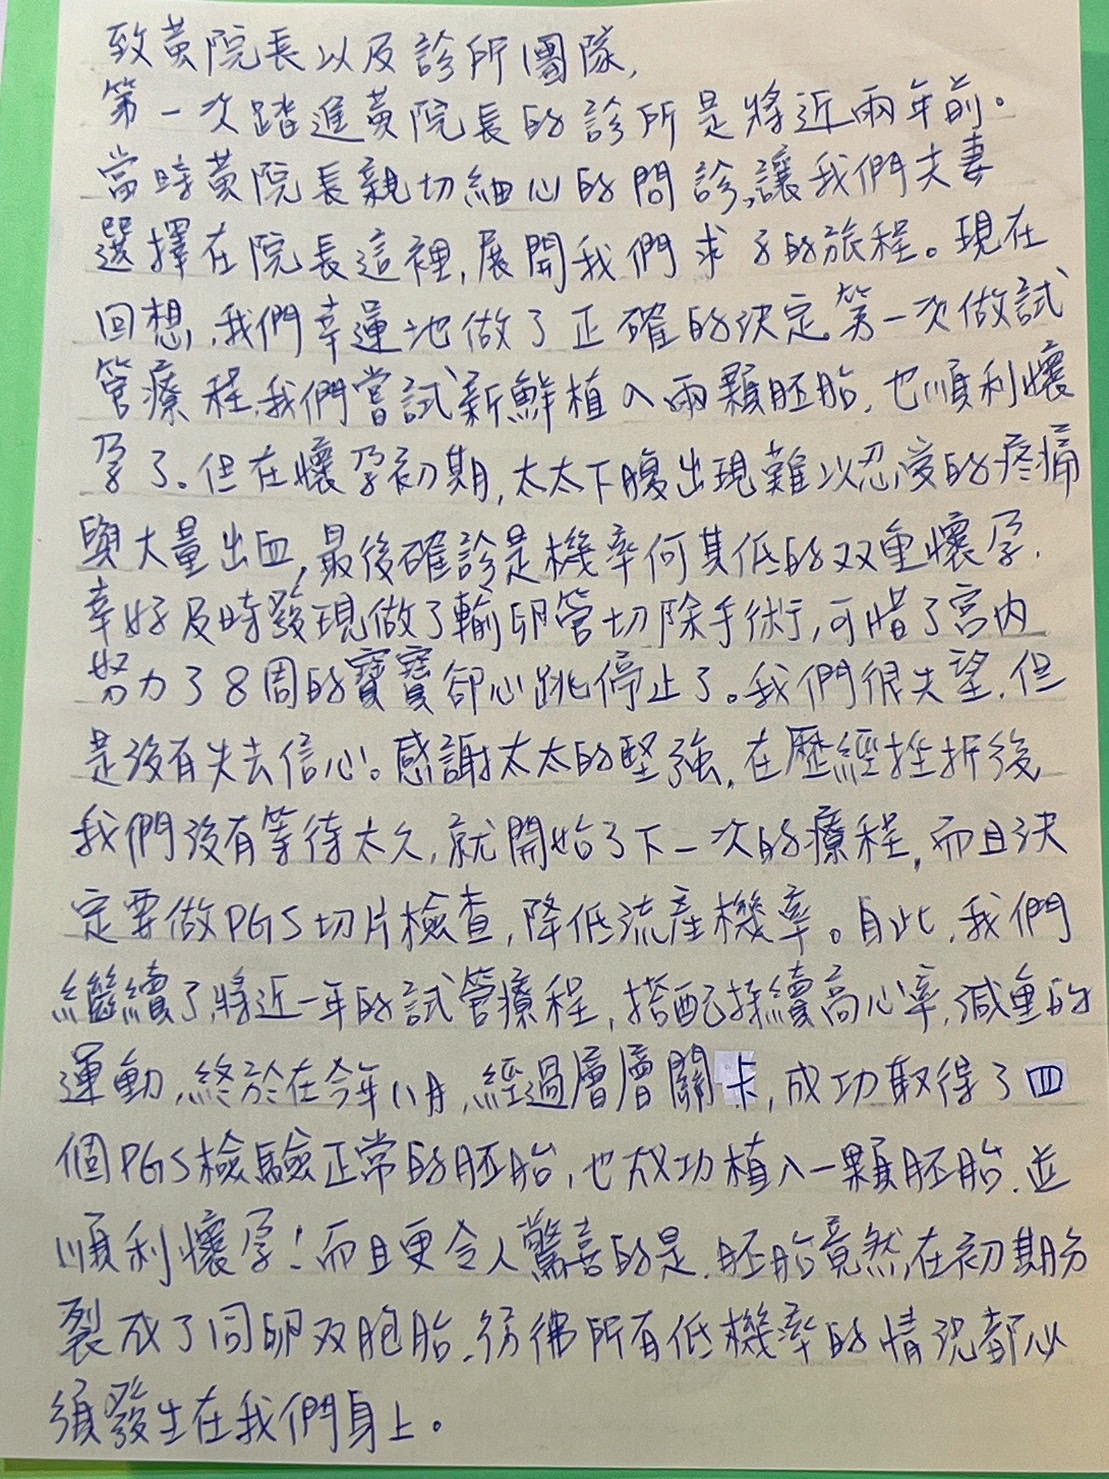 致黃院長以及診所團隊,
第一次踏進黃院長的診所是將近兩年前。
當時黃院長親切細心的問診,讓我們夫妻
選擇在院長這裡,展開我們求子的旅程。現在
回想,我們幸運地做了正確的決定。第一次做試
管療程,我們嘗試新鮮植入兩顆胚胎,也順利懷
孕了。但在懷孕初期,太太下腹出現難以忍受的疼痛
與大量出血,最後確診是機率何其低的双重懷孕.
幸好及時發現做了輸卵管切除手術,可惜了宮內
努力了8周的寶寶卻心跳停止了。我們很失望.但
是沒有失去信心。感謝太太的堅強,在歷經挫折後,
我們沒有等待太久,就開始了下一次的療程,而且決
定要做PGS切片檢查,降低流產機率。自此,我們
繼續了將近一年的試管療程,搭配持續高心率,減重的
運動,終於在今年八月,經過層層關卡,成功取得了四
個PGS檢驗正常的胚胎,也成功植入一顆胚胎.並
順利懷孕!而且更令人驚喜的是.胚胎竟然在初期分
裂成了同卵双胞胎.彷彿所有低機率的情況都必
須發生在我們身上。